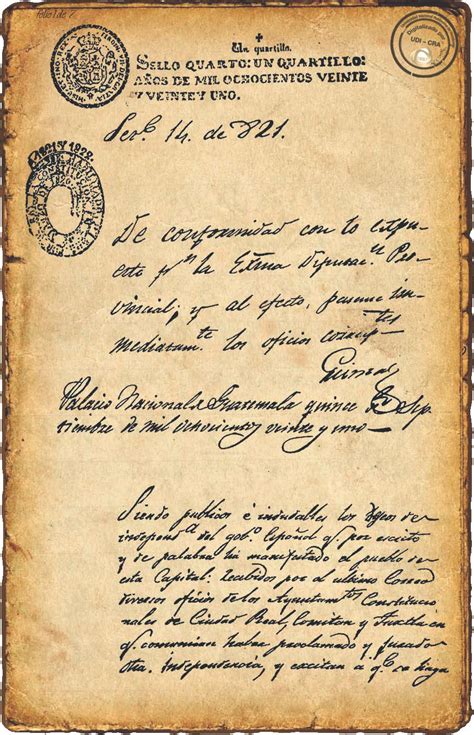 Folio 1 de 7
Digitalizado por
UDI - CRA
Un quartillo.
SELLO QUARTO: UN QUARTILLO:
AÑOS DE MIL OCHOCIENTOS VEINTE
Y VEINTE Y UNO.
14. de 821.
De conformidad con lo expu-
esto pr. la Exma Diputacn. Pro-
vincial; y al efecto, pasense in-
mediatamte. los oficios
Palacio Nacional de Guatemala quince de Sep-
tiembre de mil ochocientos veinte y uno
Siendo publicos é indudables los deseos de
independa. del gobo. Español q. por escrito
y de palabra ha manifestado el pueblo de
esta Capital: Recibidos por el ultimo Correo
diversos oficios de los Ayuntamtos Constitucio
nales de Ciudad Real, Comitan y Tuxtla en
q. comunican haber proclamado y jurado
dha. independencia, y excitan a q. se haga